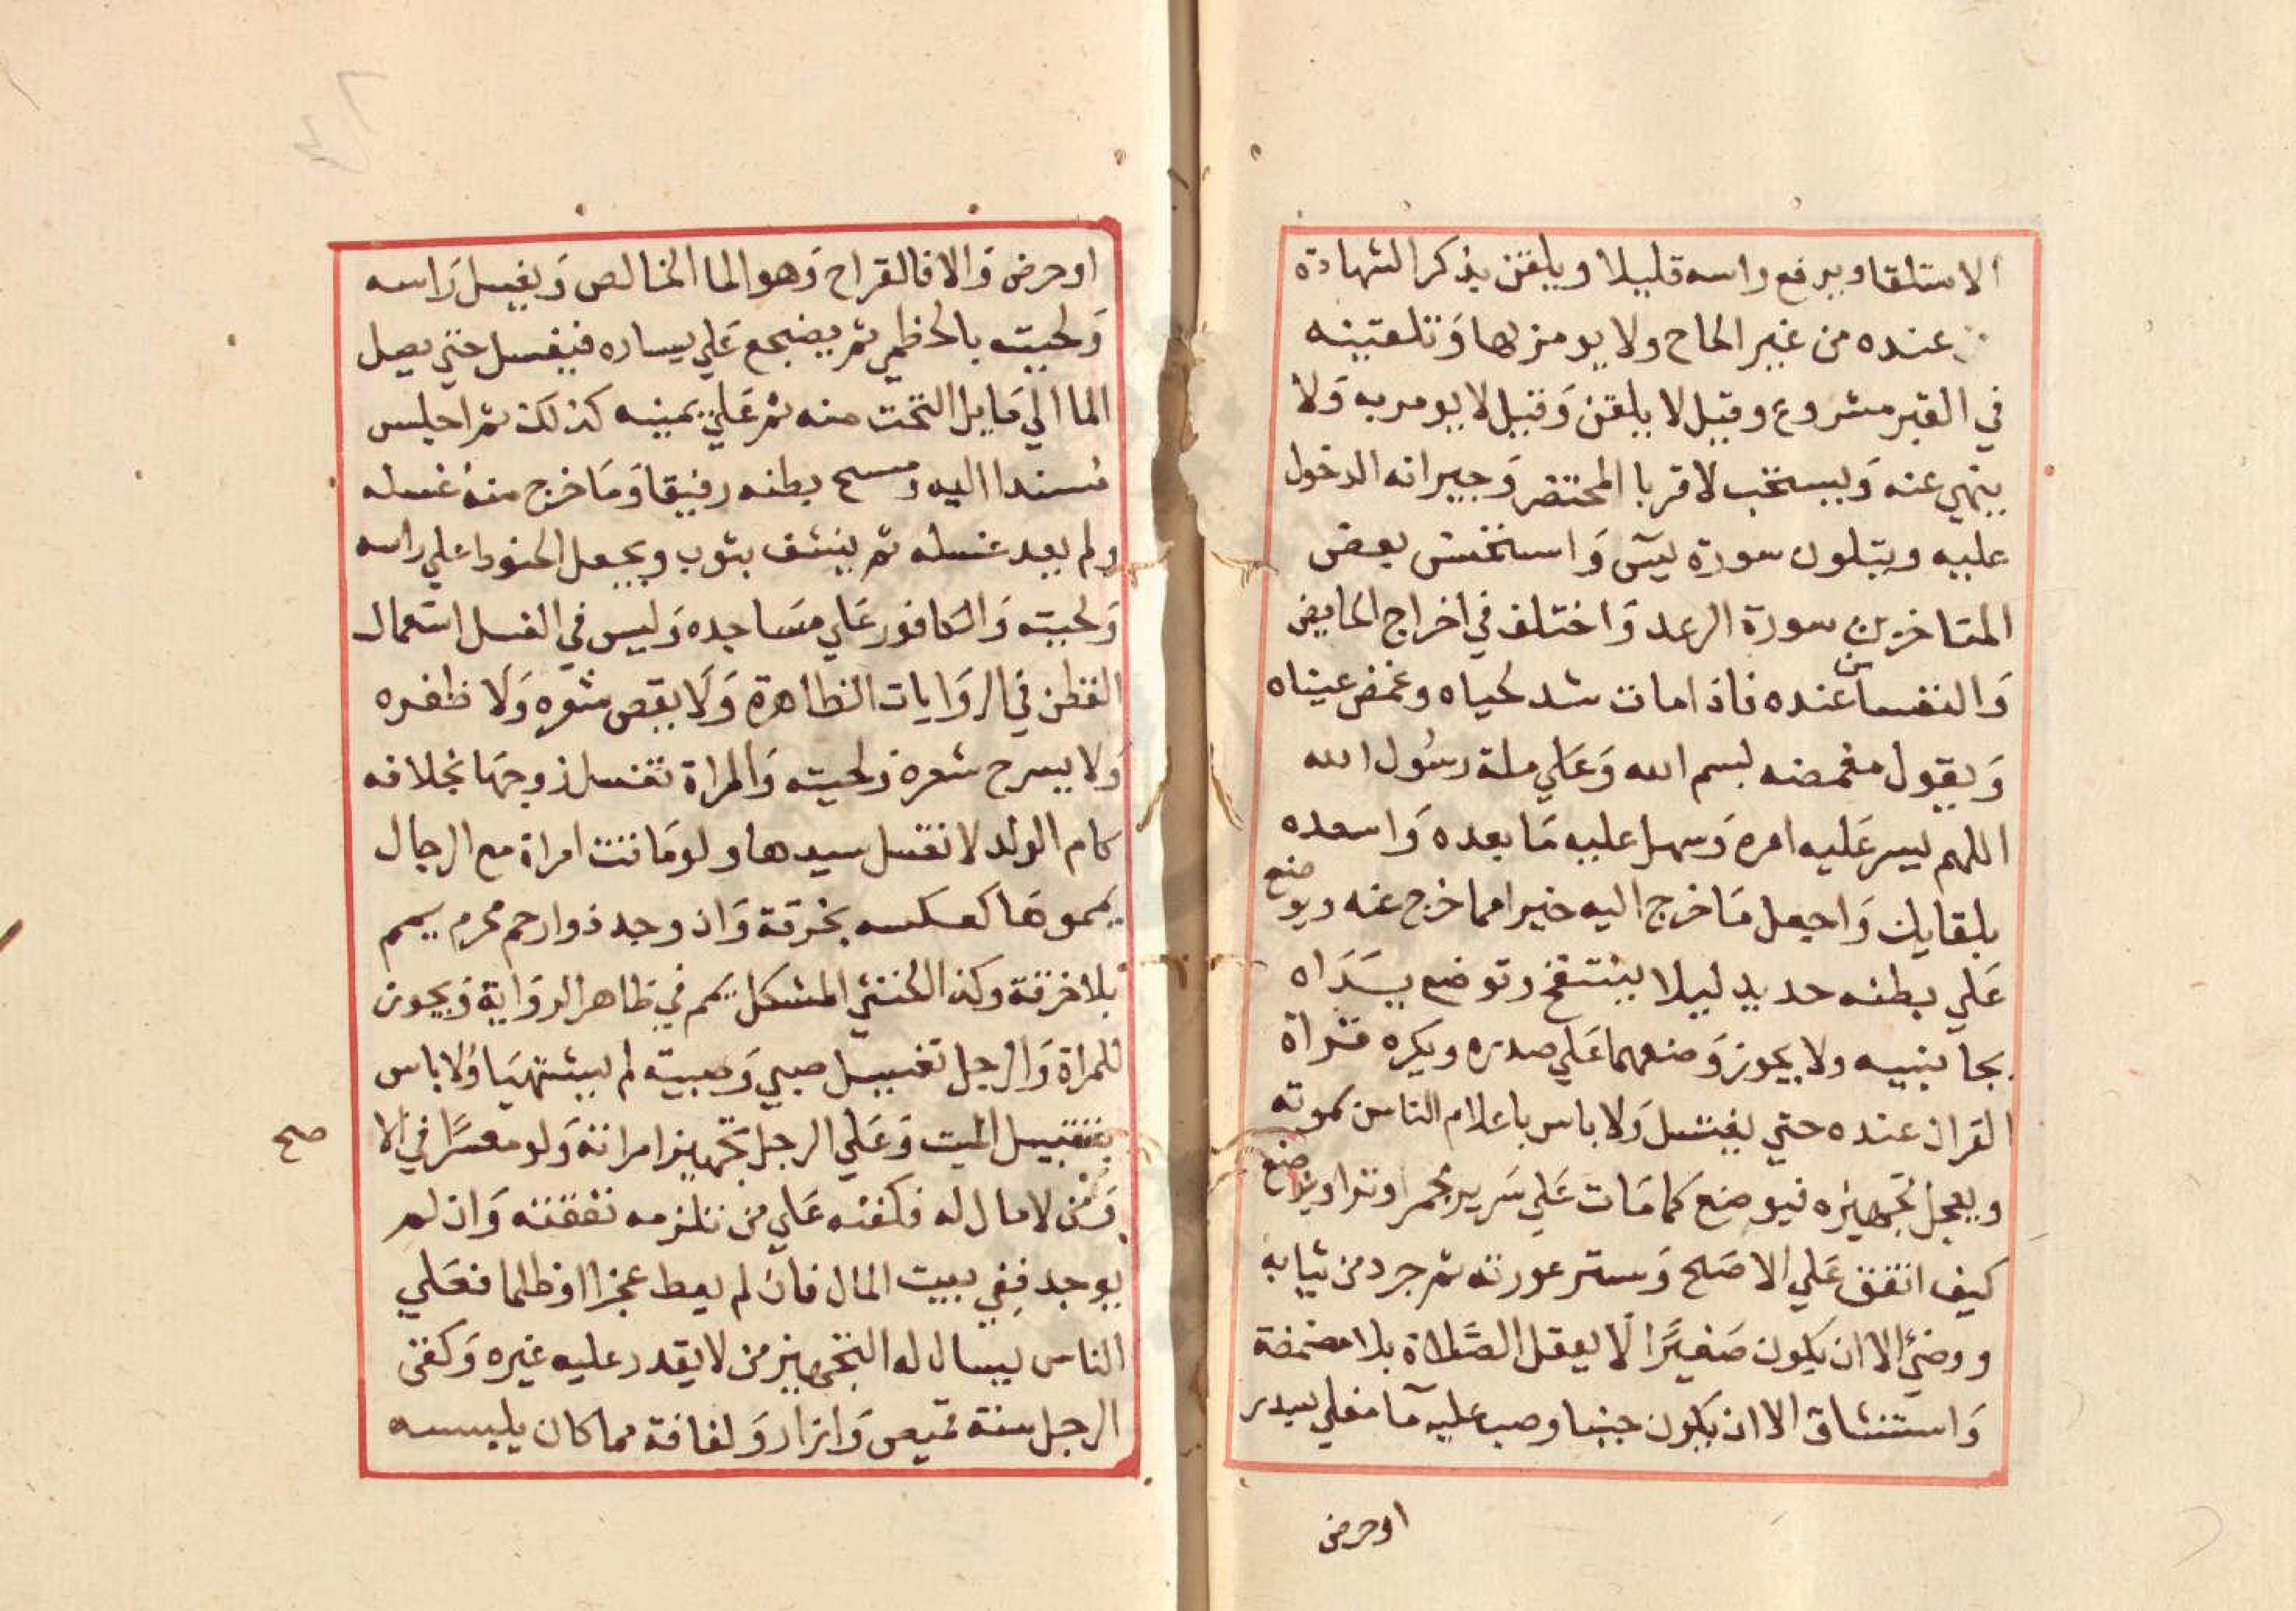 الاستلقا ويرفع راسه قليلا ويلقن بذكر الشهادة
عنده من غير الحاح ولا يومر بها وتلقينه
في القبر مشروع وقيل لا يلقن وقيل لا يومر به ولا
ينهي عنه ويستحب لاقربا المحتضر وجيرانه الدخول
عليه ويتلون سورة يس واستحسن بعض
المتاخرين سورة الرعد واختلف في اخراج الحايض
والنفسا من عنده فاذا مات شد لحياه وغمض عيناه
ويقول مغمضه بسم الله وعلي ملة رسول الله
اللهم يسر عليه امره وسهل عليه ما بعده واسعده
بلقايك واجعل ما خرج اليه خيرا مما خرج عنه ويوضع
علي بطنه حديد ليلا ينتفخ وتوضع يداه
بجانبيه ولا يجوز وضعهما علي صدره ويكره قراة
القران عنده حتي يغسل ولا باس باعلام الناس بموته
ويعجل تجهيزه فيوضع كما مات علي سرير مجمر وترا ويوضع
كيف اتفق علي الاصح وستر عورته ثم جرد من ثيابه
ووضئ الا ان يكون صغيرا لا يعقل الصلاة بلا مضمضة
واستنشاق الا ان يكون جنبا وصب عليه ما مغلي بسدر
او حرض
او حرض والا فالقراح وهو الما الخالص ويغسل راسه
ولحيته بالخطمي ثم يضجع علي يساره فيغسل حتي يصل
الما الي ما يلي التخت منه ثم علي يمينه كذلك ثم اجلس
مسندا اليه ومسح بطنه رفيقا وما خرج منه غسله
ولم يعد غسله ثم ينشف بثوب ويجعل الحنوط علي راسه
ولحيته والكافور علي مساجده وليس في الغسل استعمال
القطن في الروايات الظاهرة ولا يقص شعره ولا ظفره
ولا يسرح شعره ولحيته والمراة تغسل زوجها بخلافه
كام الولد لا تغسل سيدها ولو ماتت امراة مع الرجال
يمموها كعكسه بخرقة وان وجد ذوارحم محرم يمم
بلا خرقة وكذا الخنثي المشكل يمم في ظاهر الرواية ويجوز
للمراة والرجل تغسيل صبي وصبية لم يشتهيا ولا باس
بتقبيل الميت وعلي الرجل تجهيز امراته ولو معسرا في الا
صح
ومن لا مال له فكفنه علي من تلزمه نفقته وان لم
يوجد ففي بيت المال فان لم يعط عجزا او ظلما فعلي
الناس يسال له التجهيز من لا يقدر عليه غيره وكفن
الرجل سنة قميص وازار ولفافة مما كان يلبسه